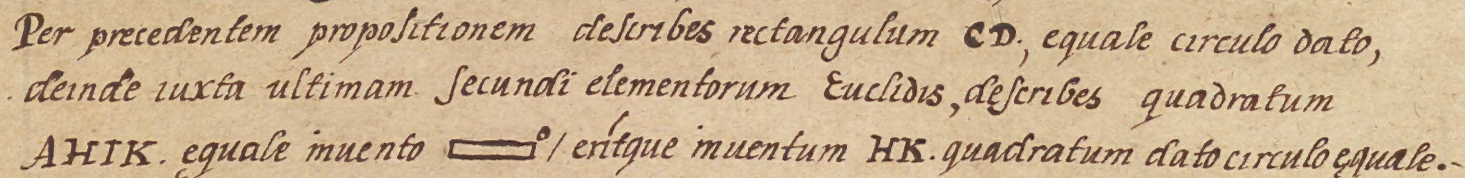 Per precedentem propositionem describes rectangulum CD., equale circulo dato,
deinde iuxta ultimam secundi elementorum Euclidis, describes quadratum
AHIK. equale inuento ▭° / erítque inuentum HK. quadratum dato circulo ęquale.-